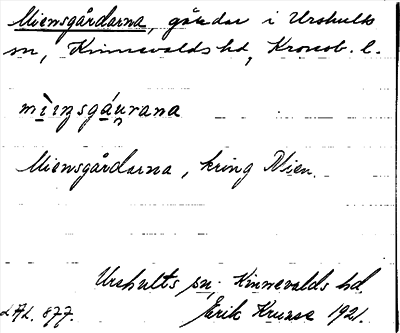 Miensgårdarna, gårdar i Urshults
sn, Kinnevalds hd, Kronob. l.
mìı̣nsgáu̯rana
Miensgårdarna, kring Mien.
Urshults sn, Kinnevalds hd.
LAL. 877. Erik Kruse 1921.